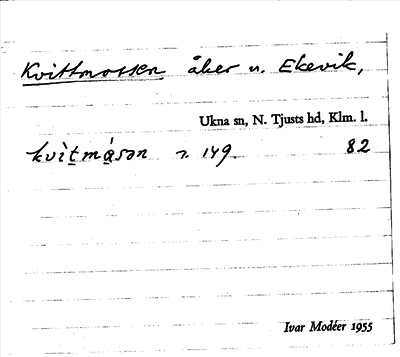 Kvittmossen, åker u. Ekevik,
Ukna sn, N. Tjusts hd, Klm. l.
kvìtmåsən s. 149. 82
Ivar Modéer 1955